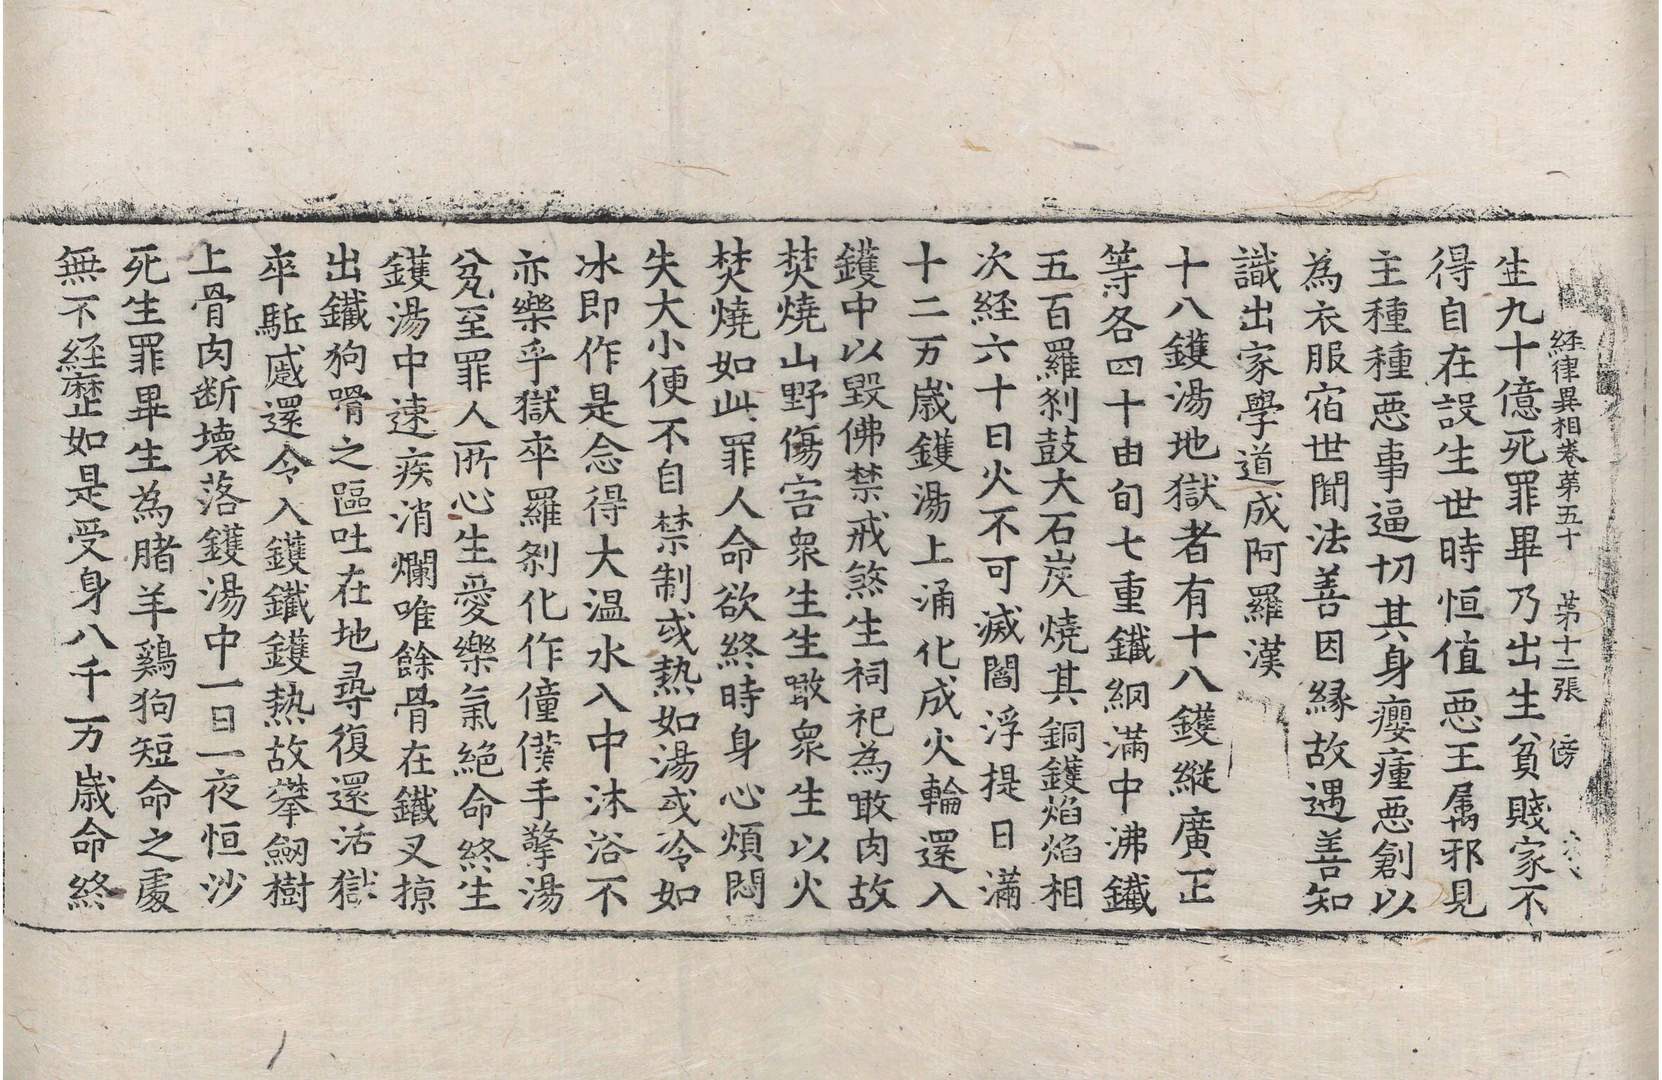 経律異相卷第五十 第十二張 傍
生九十億死罪畢乃出生貧賤家不
得自在設生世時恒值悪王属邪見
主種種悪事逼切其身癭瘇悪創以
為衣服宿世聞法善因縁故遇善知
識出家學道成阿羅漢
十八鑊湯地獄者有十八鑊縱廣正
等各四十由旬七重鐵網滿中沸鐵
五百羅刹鼓大石炭燒其銅鑊焰焰相
次経六十日火不可滅閻浮提日滿
十二万歲鑊湯上涌化成火輪還入
鑊中以毀佛禁戒煞生祠祀為噉肉故
焚燒山野傷害衆生生噉衆生以火
焚燒如此罪人命欲終時身心煩悶
失大小便不自禁制或熱如湯或冷如
冰即作是念得大温水入中沐浴不
亦樂乎獄卒羅刹化作僮僕手擎湯
瓫至罪人所心生愛樂氣絶命終生
鑊湯中速疾消爛唯餘骨在鐵叉掠
出鐵狗嚼之嘔吐在地尋復還活獄
卒駈慼還令入鑊鐵鑊熱故攀劒樹
上骨肉断壊落鑊湯中一日一夜恒沙
死生罪畢生為賭羊鷄狗短命之處
無不経歴如是受身八千万歲命終